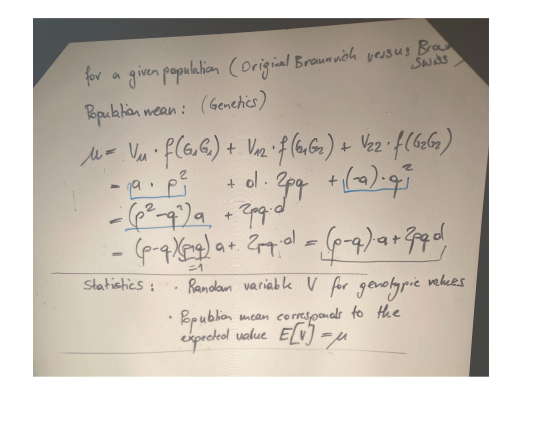 for a given population (Original Braunvieh versus Brown
Swiss)
Population mean: (Genetics)
μ = V₁₁ · f(G₁G₁) + V₁₂ · f(G₁G₂) + V₂₂ · f(G₂G₂)
= a · p² + d · 2pq + (-a) · q²
= (p²-q²)a + 2pq·d
= (p-q)(p+q) a + 2pq·d = (p-q)·a + 2pq d
=1
Statistics: · Random variable V for genotypic values
· Population mean corresponds to the
expected value E[V] = μ